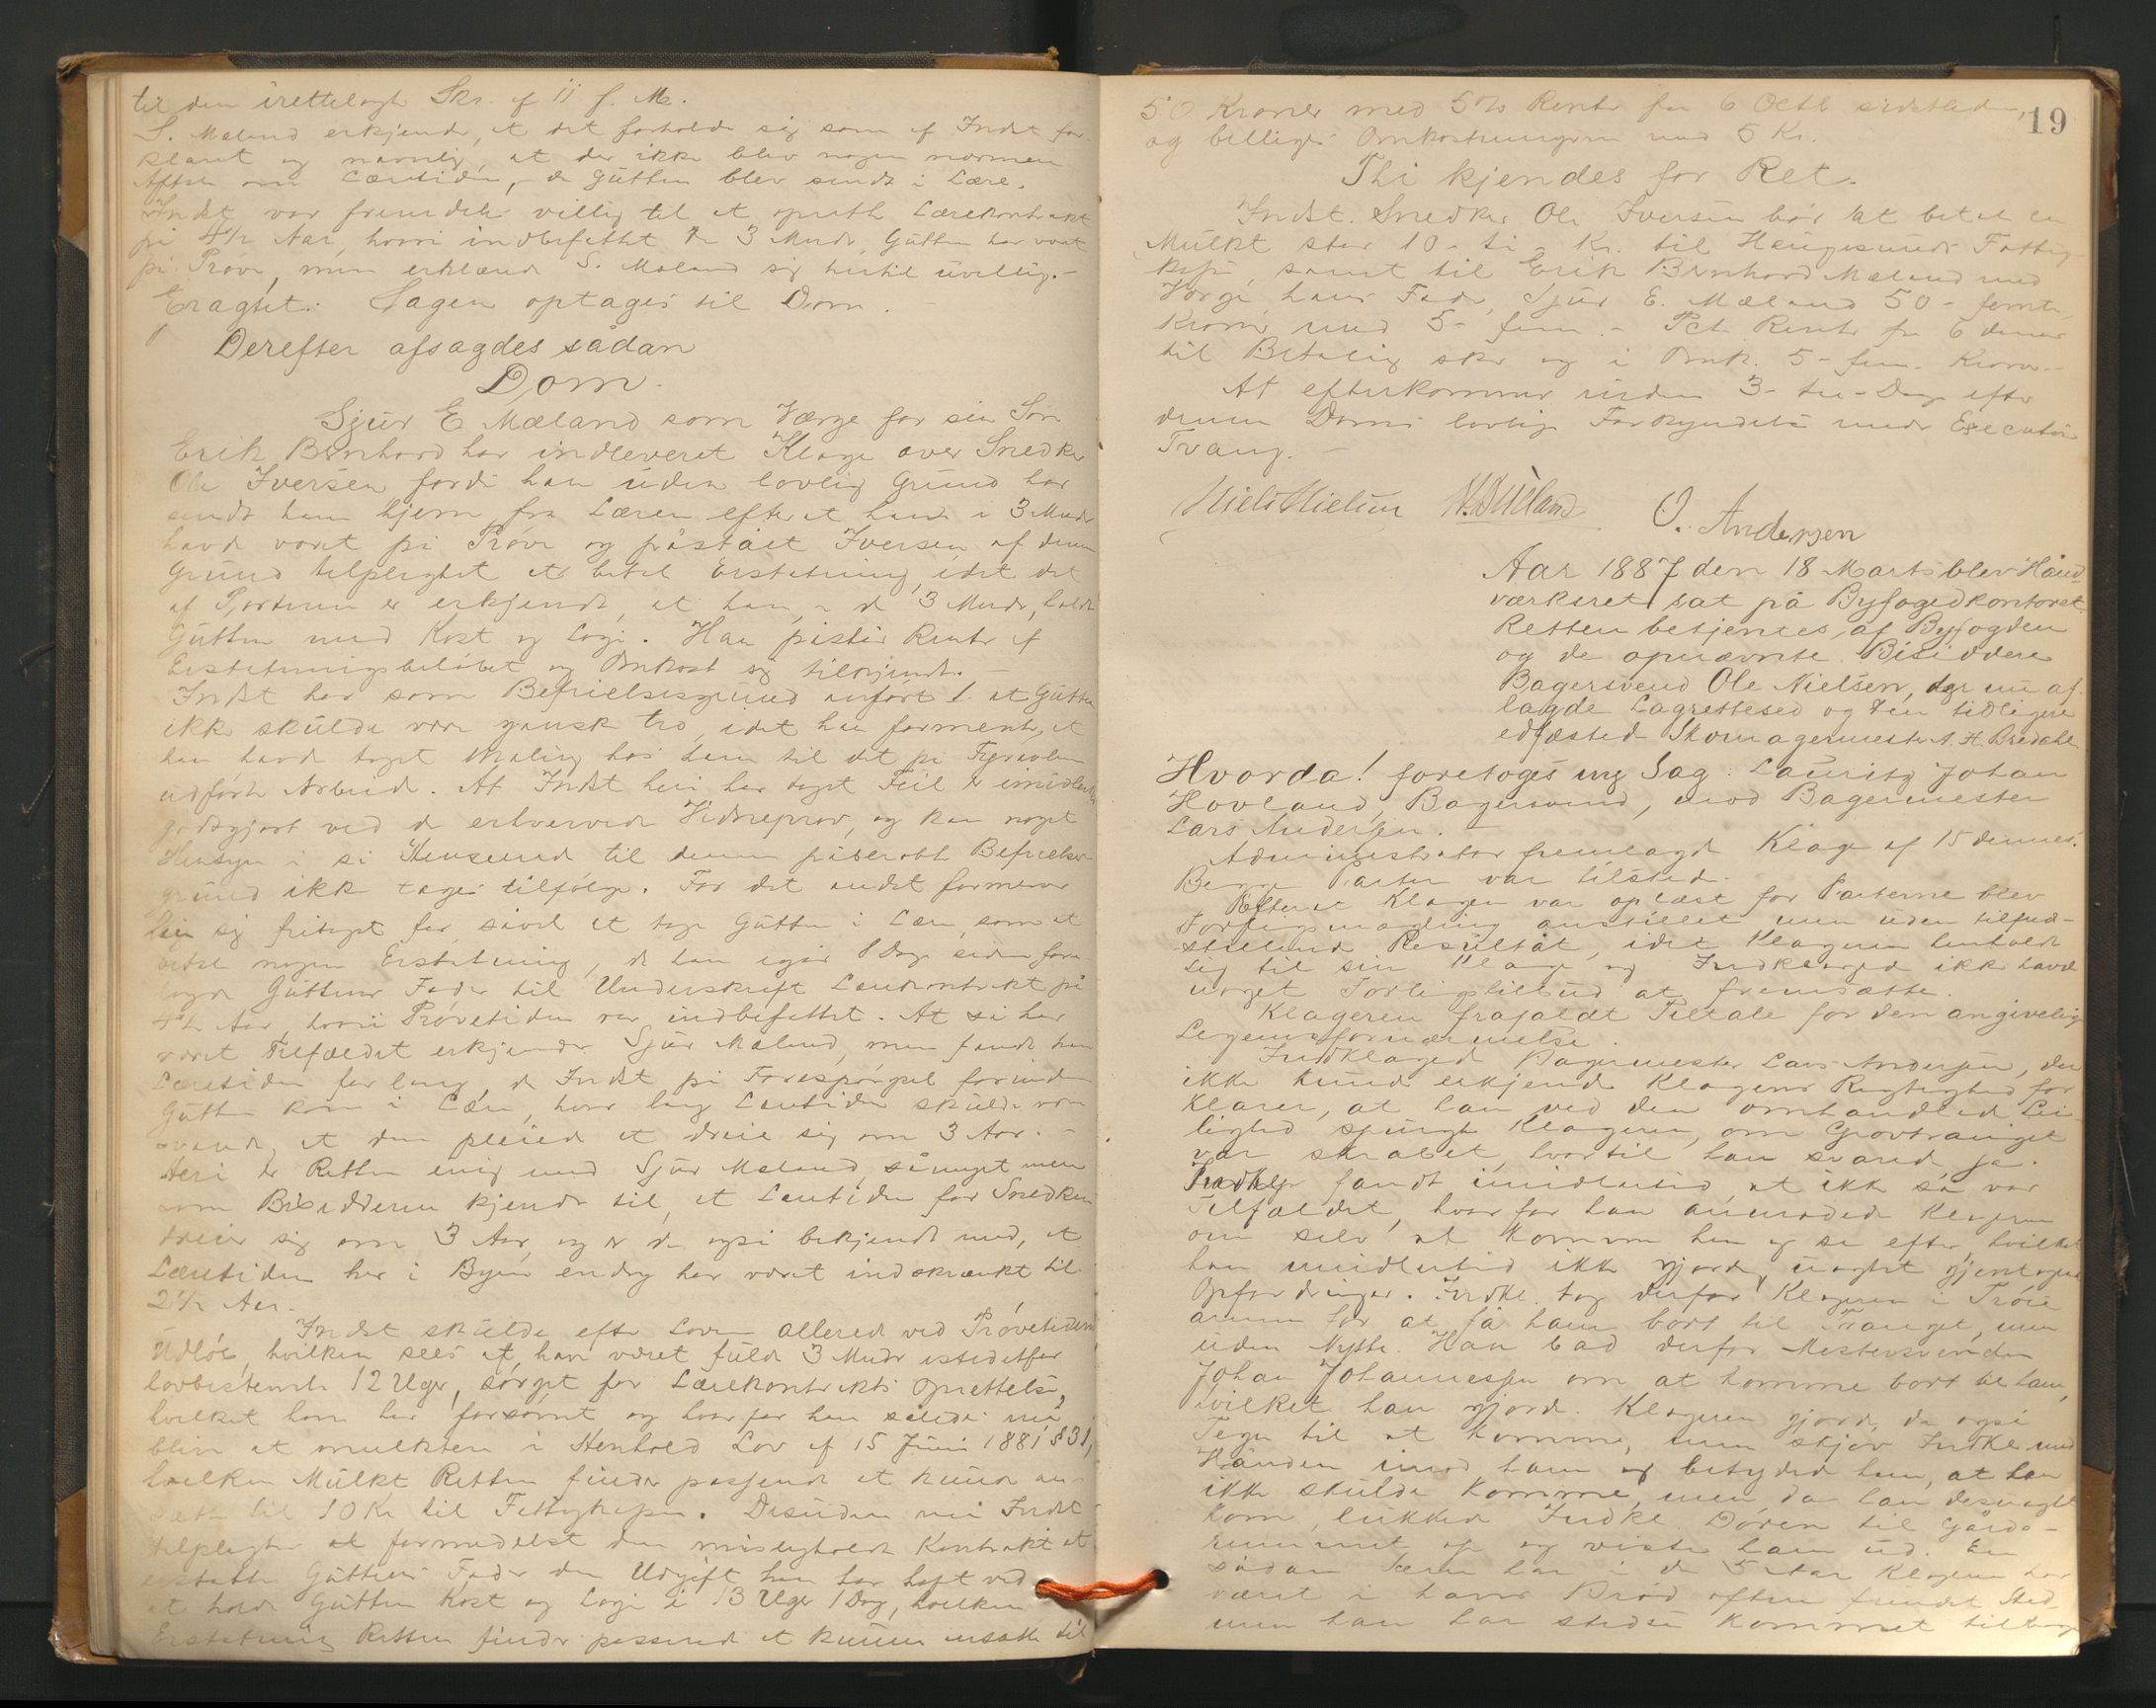 til den irettelagte Skr. af 11 f. M.
S. Mæland erkjendte, at det forholder sig som af Indst for-
klaret og navnlig, at der ikke blev nogen nærmere
Aftale om Læretiden, da Gutten blev sendt i Lære.
Indst var fremdeles villig til at oprette Lærekontrakt
på 4½ Aar, hvori indbefattet de 3 Mndr Gutten har været
på Prøve, men erklærede S. Mæland sig hertil uvillig.-
Eragtet: Sagen optages til Dom.
Derefter afsagdes sådan
Dom.
Sjur E Mæland som Værge for sin Søn
Erik Bernhard har indleveret Klage over Snedker
Ole Iversen fordi han uden lovlig Grund har
sendt ham hjem fra Læren efterat have i 3 Mndr
havde været på Prøve og påstået Iversen af denne
Grund tilpligtet at betale Erstatning, idet det
af Parterne er erkjendt, at han, i de 3 Mndr, holdt
Gutten med Kost og Logi. Han påstår Renter af
Erstatningsbeløbet og Omkost sig tilkjendt.-
Indst har som Befrielsesgrund anført 1. at Gutten
ikke skulde være ganske tro, idet han formente, at
han havde taget Maling hos ham til det på
udførte Arbeid. At Indst heri har taget Feil er imidlertid
godtgjort ved de erhvervede Vidneprov, og kan noget
Hensyn i så Henseende til denne påberåbte Befrielses-
grund ikke tages tilfølge. For det andet formener
han sig fritaget for såvel at tage Gutten i Lære, som at
nogen Erstatning, da han igår 8 Dage siden fore-
lagde Guttens Fader til Underskrift Lærekontrakt på
4½ Aar, hvori Prøvetiden var indbefattet. At så har
været Tilfældet erkjender Sjur Mæland, men fandt han
Læretiden for lang, da Indst på Forespørgsel forinden
Gutten kom i Lære, hvor lang Læretiden skulde være
svarede, at den pleiede at dreie sig om 3 Aar.-
Heri er Retten enig med Sjur Mæland, såmeget mere
som Bisidderne kjender til, at Læretiden for Snedkere
dreier sig om 3 Aar, og er de også bekjendt med, at
Læretiden her i Byen endog har været indskrænket til
2½ Aar.
Indst skulde efter Loven allerede ved Prøvetidens
Udløb, hvilken sees at have været fulde 3 Mndr istedetfor
lovbestemte 12 Uger, sørget for Lærekontrakts Oprettelse,
hvilket han har forsømt og hvorfor han således må
blive at mulktere i Henhold Lov af 15 Juni 1881 § 31,
hvilken Mulkt Retten finder passende at kunne an-
sætte til 10 Kr til Fattigkassen. Desuden må Indst
tilpligtes at formedelst den misligholdte Kontrakt at
erstatte Guttens Fader den Udgift han har haft ved
at holde Gutten Kost og Logi i 13 Uger 1 Dag, hvilken
Erstatning Retten finder passende at kunne ansætte til
19
50 Kroner med 5% Rente fra 6 Octb sidstleden,
og billiges Omkostningerne med 5 Kr.
Thi kjendes for Ret.
Indst. Snedker Ole Iversen bør at betale en
Mulkt stor 10 - ti - Kr. til Haugesunds Fattig-
kasse, samt til Erik Bernhard Mæland med
Værge hans Fader, Sjur E. Mæland 50 - femti
Kroner med 5 - fem - Pct. Rente fra 6 dennes
til Betaling sker og i Omk. 5 - fem - Kroner.-
At efterkommes inden 3 - tre - Dage efter
denne Doms lovlige Forkyndelse under Executions
Tvang.-
Niels Nielsen O. Andersen
Aar 1887 den 18 Marts blev Hånd-
værksret sat på Byfogedkontoret.
Retten betjentes af Byfogden
og de opnævnte Bisiddere
Bagersvend Ole Nielsen, der nu af-
lagde Lagrettesed og den tidligere
edfæstede Skomagermester A. H. Bredahl.
Hvorda! foretoges ny Sag: Lauritz Johan
Hovland, Bagersvend, mod Bagermester
Lars Andersen.-
Administrator fremlagde Klage af 15 dennes.
Begge Parter var tilstede.
Efterat Klagen var oplæst for Parterne blev
Forligsmægling anstillet men uden tilfreds-
stillende Resultat, idet Klageren henholdt
sig til sin Klage og Indklagede ikke havde
noget Forligstilbud at fremsætte.
Klageren frafaldt Tiltale for den angivelige
Legemsfornærmelse.
Indklagede Bagermester Lars Andersen, der
ikke kunde erkjende Klagens Rigtighed for-
klarer, at han ved den omhandlede Lei-
lighed spurgte Klageren, om Grovtrauget
var skrabet, hvortil han svarede ja.
Indkl fandt imidlertid, at ikke så var
Tilfældet, hvorfor han anmodede Klageren
om selv at komme hen og se efter, hvilket
han imidlertid ikke gjorde, uagtet gjentagne
Opfordringer. Indkl. tog derfor Klageren i Trøie
armen for at få ham bort til Trauget, men
uden Nytte. Han bad derfor Mestersvenden
Johan Johannessen om at komme bort til ham,
hvilket han gjorde. Klageren gjorde da også
Tegn til at komme, men skjøv Indkl med
Hånden imod ham og betydede ham, at han
ikke skulde komme, men da han desuagtet
kom, lukkede Indkl. Døren til Gårds-
rummet op og viste ham ud. En
sådan Scene har i de 5 Aar Klageren har
været i hans Brød oftere fundet Sted
men han har stedse kommet tilbage